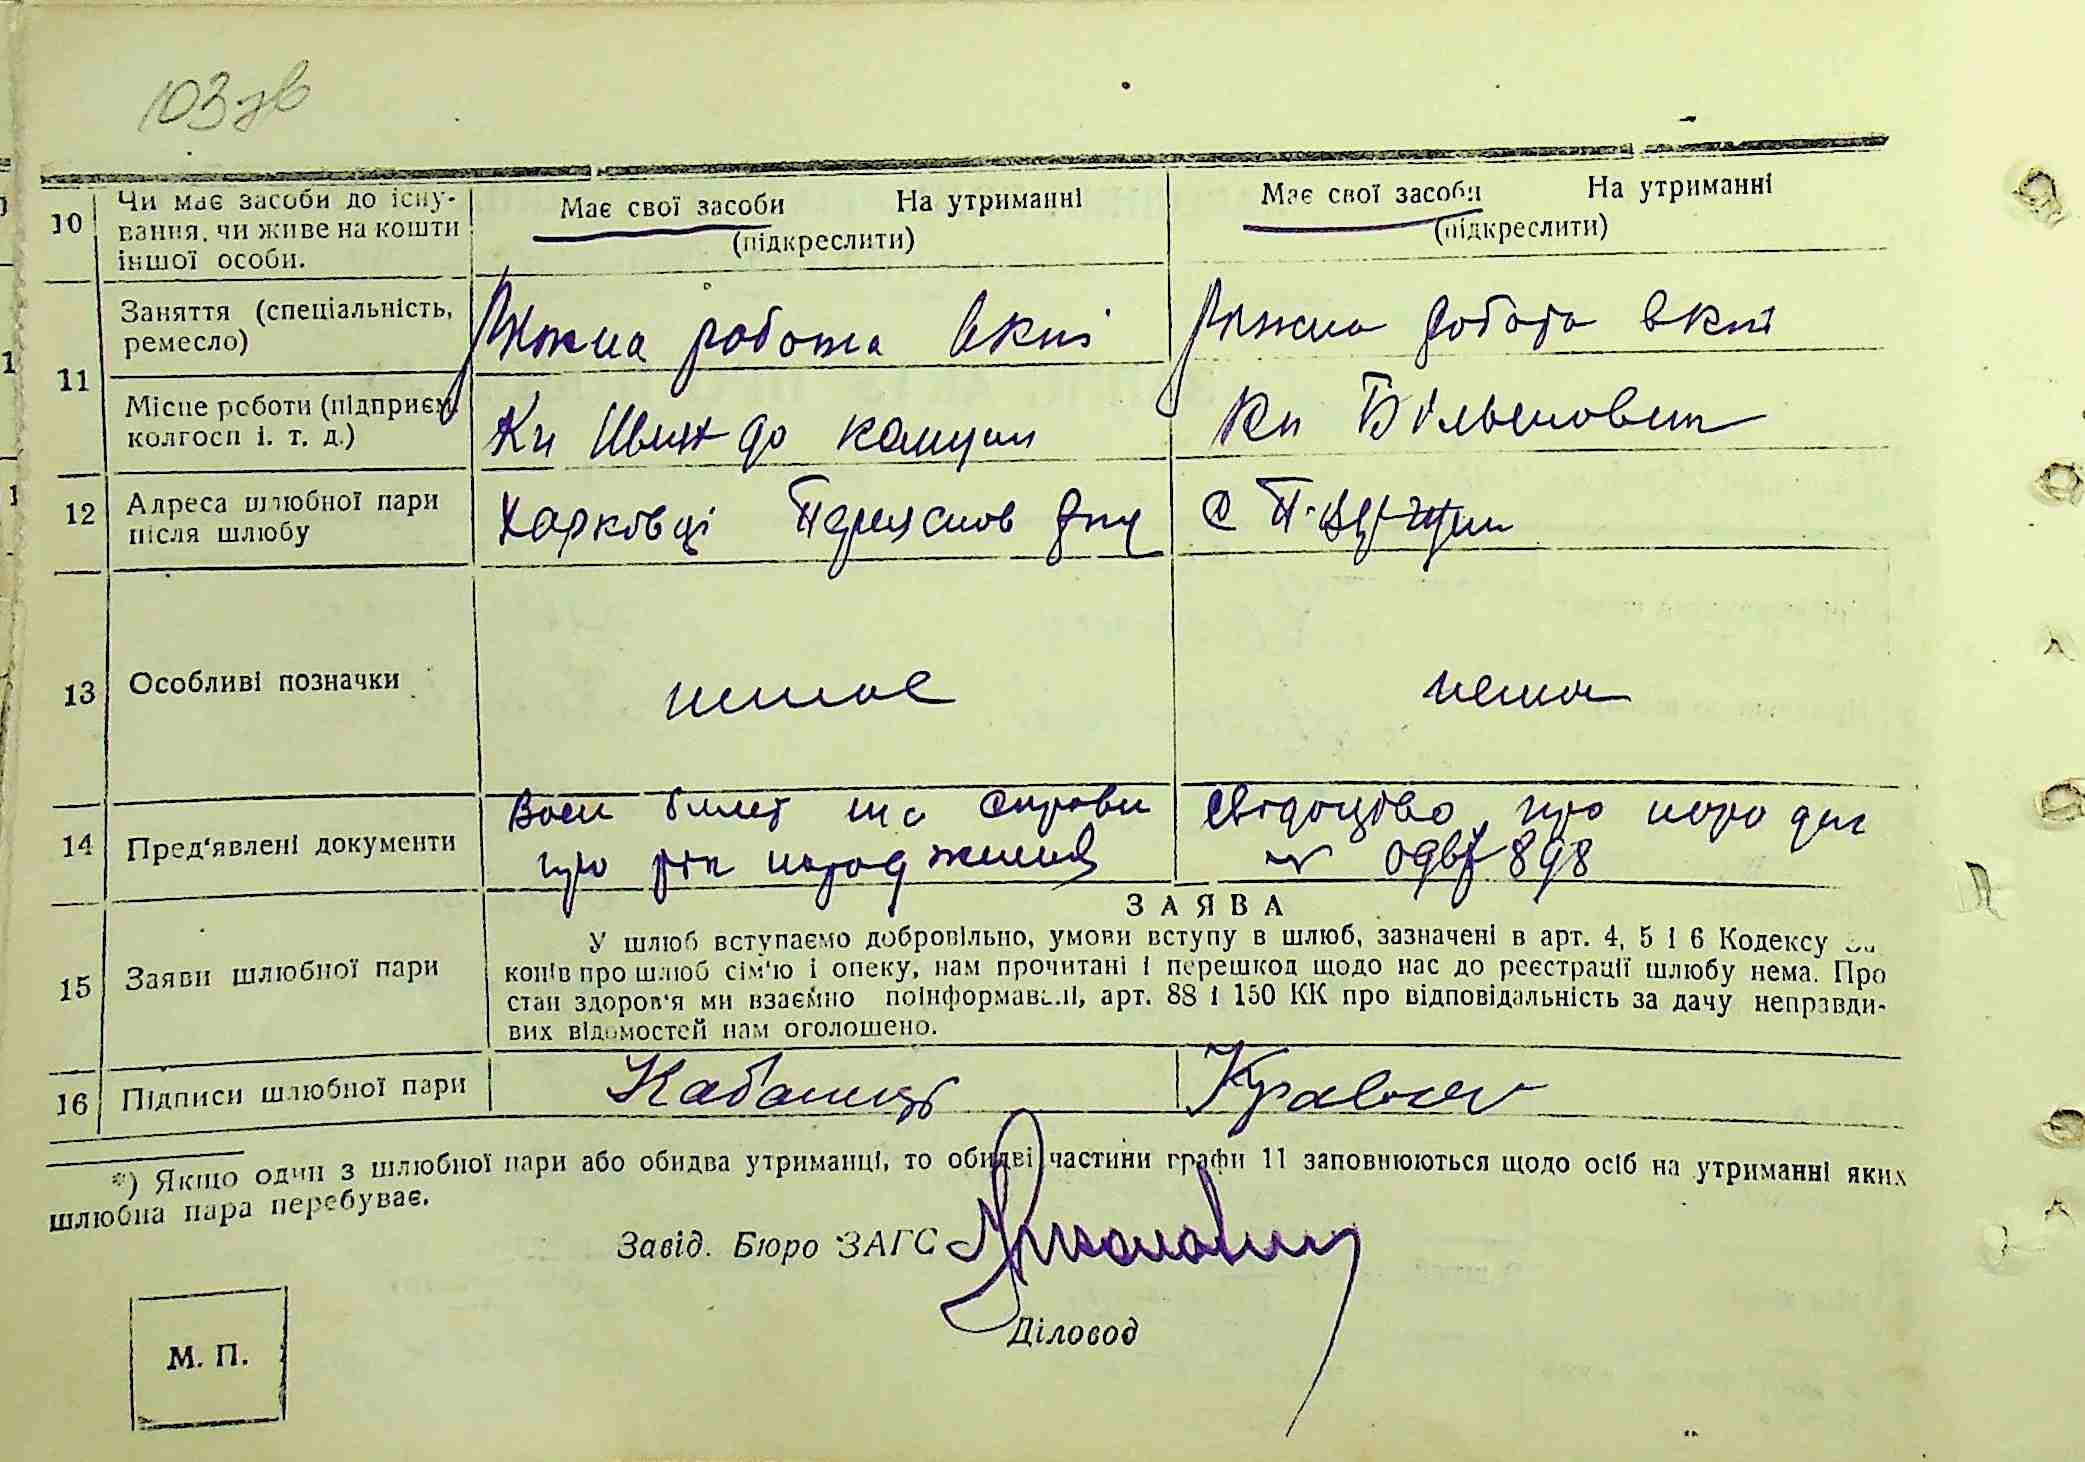 103зв
10 Чи має засоби до існу-
вання, чи живе на кошти
іншої особи.
Має свої засоби На утриманні
(підкреслити)
Має свої засоби На утриманні
(підкреслити)
11 Заняття (спеціальність,
ремесло)
робота в кні
робота в кні
Місце роботи (підприєм.
колгосп і. т. д.)
Кн
Кн Більшовик
12 Адреса шлюбної пари
після шлюбу
Харківці Переяслов
с
13 Особливі позначки
немає
нема
14 Пред'явлені документи
Воен билет та справка
про рік народження
свідоцтво про народж
898
ЗАЯВА
15 Заяви шлюбної пари
У шлюб вступаємо добровільно, умови вступу в шлюб, зазначені в арт. 4, 5 і 6 Кодексу За
конів про шлюб сім'ю і опеку, нам прочитані і перешкод щодо нас до реєстрації шлюбу нема. Про
стан здоров'я ми взаємно поінформавалі, арт. 88 і 150 КК про відповідальність за дачу неправди-
вих відомостей нам оголошено.
16 Підписи шлюбної пари
*) Якщо один з шлюбної пари або обидва утриманці, то обидві частини графи 11 заповнюються щодо осіб на утриманні яких
шлюбна пара перебуває.
Завід. Бюро ЗАГС
Діловод
М. П.